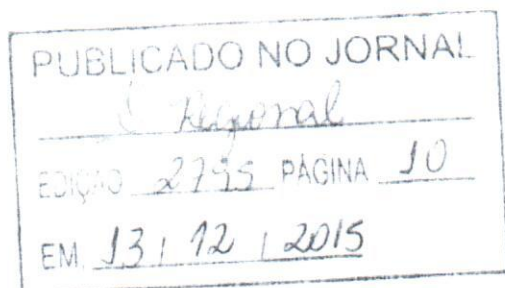 PUBLICADO NO JORNAL
Regional
EDIÇÃO 2795 PÁGINA 10
EM 13 / 12 / 2015